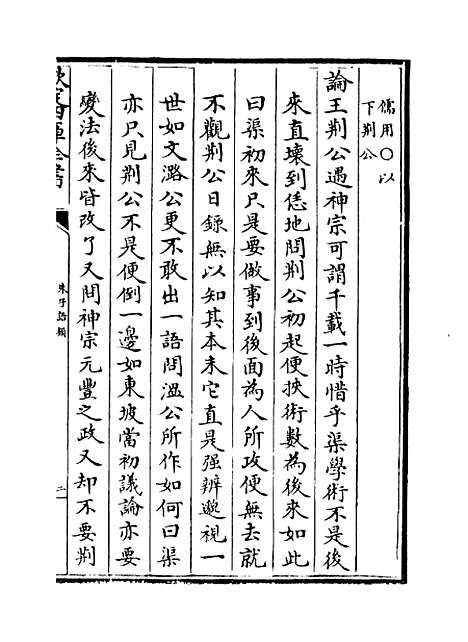 儒用○以
下荆公
論王荆公遇神宗可謂千載一時惜乎渠學術不是後
來直壞到恁地問荆公初起便挾術數為後來如此
曰渠初來只是要做事到後面為人所攻便無去就
不觀荆公日錄無以知其本末它直是强辨邈視一
世如文潞公更不敢出一語問溫公所作如何曰渠
亦只見荆公不是便倒一邊如東坡當初議論亦要
變法後來皆改了又問神宗元豐之政又却不要荆
欽定四庫全書
朱子語類